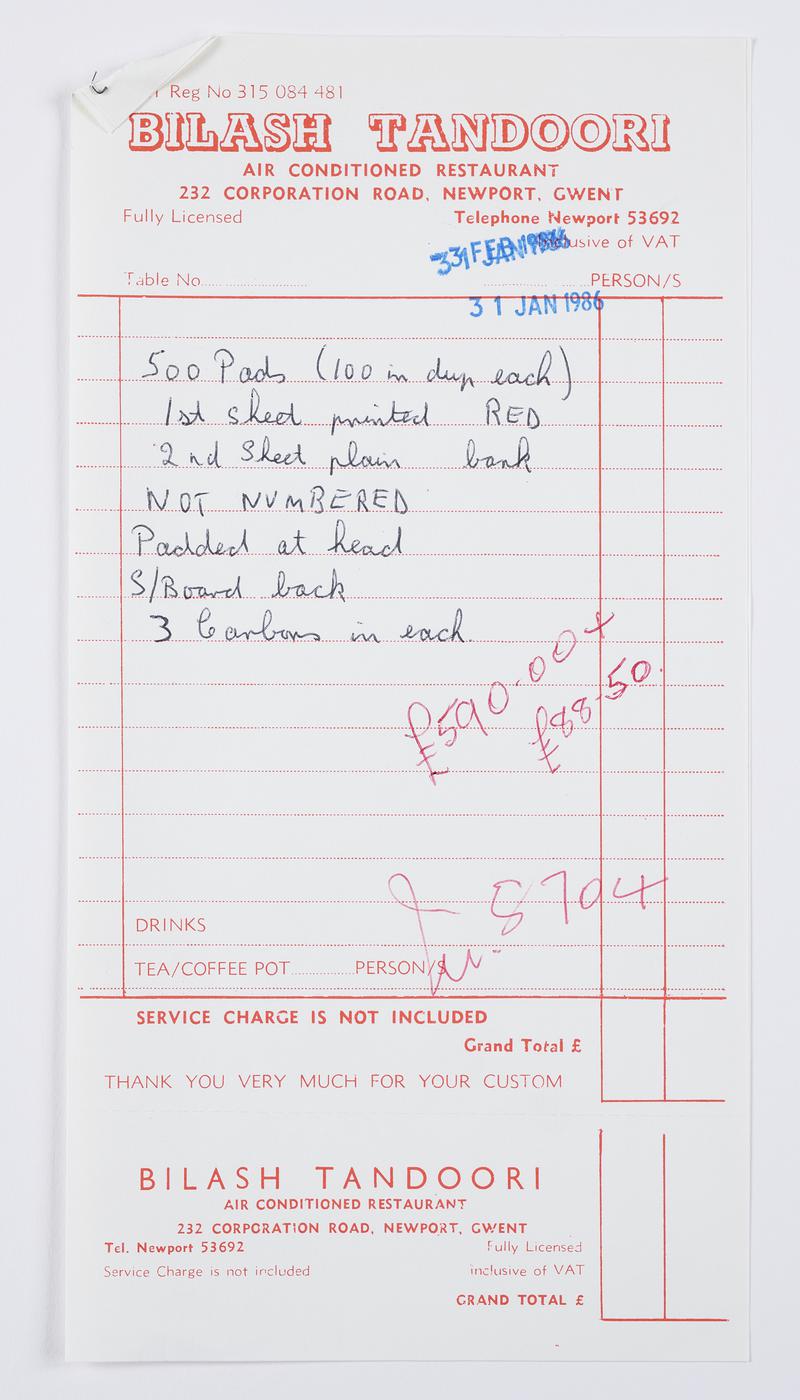 Reg No 315 084 481
BILASH TANDOORI
AIR CONDITIONED RESTAURANT
232 CORPORATION ROAD, NEWPORT, GWENT
Fully Licensed Telephone Newport 53692
of VAT
Table No. PERSON/S
31 JAN 1986
500 Pads (100 in dup each)
1st sheet printed RED
2nd Sheet plain bank
NOT NUMBERED
Padded at head
S/Board back
3 Carbons in each.
£590.00 +
£88.50.
8704
DRINKS
TEA/COFFEE POT PERSON/S
SERVICE CHARGE IS NOT INCLUDED
Grand Total £
THANK YOU VERY MUCH FOR YOUR CUSTOM
BILASH TANDOORI
AIR CONDITIONED RESTAURANT
232 CORPORATION ROAD, NEWPORT, GWENT
Tel. Newport 53692 Fully Licensed
Service Charge is not included inclusive of VAT
GRAND TOTAL £